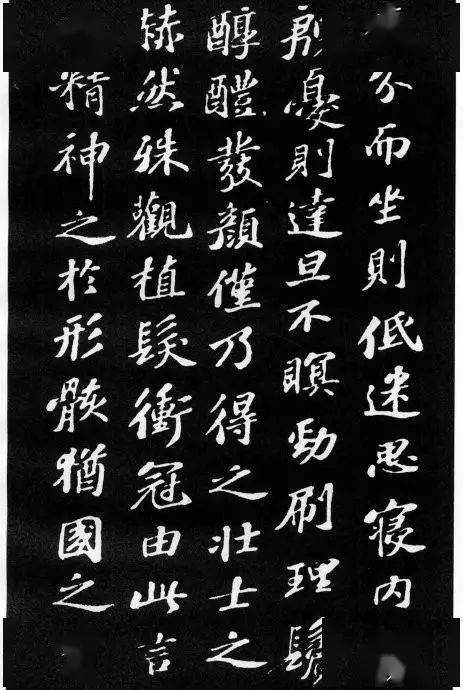 分而坐則低迷思寢内
憂則達旦不瞑勁刷理鬢
醇醴發顏僅乃得之壯士之
赫然殊觀植髮衝冠由此言
精神之於形骸猶國之